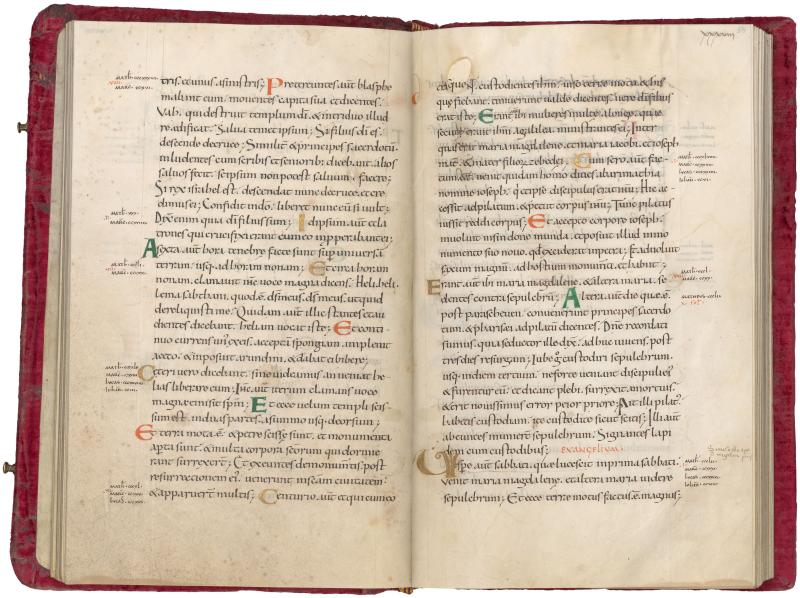 tris. eumus. asinistris; Pretereuntes. aut̄ blasphe
mabant eum. mouentes capita sua et dicentes.
Vah. qui destruit templum dī. & intriduo illud
reædificat. Salua temet ipsum; Si filius dī es.
descendo decruce; Similit̄ & principes sacerdotū
inludentes cum scribis et seniorib; dicebant. alios
saluos fecit. seipsum non potest saluum facere;
Si rex israhel est. descendat nunc decruce. et cre
dimus ei; Confidit indō. liberet nunc eū si uult;
Dix̄ enim quia dī filius sum; Idipsum aut̄ et la
trones qui crucifixi erant cum eo inproperabant ei;
Asexta. aut̄ hora tenebre facte sunt sup̄ uniuersā
terram. usq; adhoram nonam; Et circa horam
nonam. clamauit ih̄c uoce magna dicens. Heli. heli.
lema sabthani. quod ē. ds̄ meus. ds̄ meus. ut quid
dereliquisti me. Quidam aut̄ illic stantes et au
dientes dicebant. heliam uocat iste; Et conti
nuo currens unus ex eis. acceptā spongiam. impleuit
aceto. & inposuit arundini. & dabat ei bibere;
Ceteri uero dicebant. sine uideamus. an ueniat he
lias liberare eum; Ih̄c. aut̄ iterum clamans uoce
magna emisit sp̄m; Et ecce uelum templi scis
sum est. induas partes. asummo usq; deorsum;
Et terra mota ē. & petre scisse sunt. et monumenta
aperta sunt. & multa corpora sc̄orum qui dormie
rant surrexerē; Et exeuntes demonumtis. post
resurrectionem ei'. uenerunt in sc̄am ciuitatem.
& apparuerē multis; Centurio. aut̄ et qui cum eo
xxxviiii
erant custodientes ihm̄. uiso terre motu. & his
que fiebant. timuerunt ualde dicentes. uere dī filius
erat iste; Erant ibi mulieres multe alonge. que
secute erant ihm̄ agalilea ministrantes ei; Inter
quas erat maria magdalene. et maria iacobi. et ioseph
mat̄. & mater filior. zebedei; Cum sero. aut̄ fac
tum eēt. uenit quidam homo diues abarimathia
nomine ioseph. q̄ et ipse discipulus erat ihū; Hic ac
cessit adpilatum. & petiit corpus ihū; Tunc pilatus
iussit reddi corpus; Et accepto corpore ioseph.
inuoluit in sindone munda. et posuit illud in mo
numento suo nouo. qd̄ exciderat inpetra; Et aduoluit
saxum magnū. adhostium monumti. et habiit;
Erant. aut̄ ibi maria magdalene. & altera maria. se
dentes contra sepulchrū; Altera. aut̄ die que ē.
post parasceuen. conuenerunt principes sacerdo
tum. & pharisei. adpilatū dicentes. Dn̄e recordati
sumus. quia seductor ille dix̄. adhuc uiuens. post
tres dies resurgam; Iube q̄ custodiri sepulchrum.
usq; indiem tertium. ne forte ueniant discipuli ei'
& furentur eū. et dicant plebi. surrexit amortuis.
& erit nouissimus error peior priore; Ait illi pilat'.
habetis custodiam. ite custodite sicut scitis; Illi aut̄
abeuntes. munierē sepulchrum. Signantes lapi
dem cum custodibus; EVANGELIVM.
Vespe. aut̄ sabbati. que lucescit inprima sabbati.
uenit maria magdalene. et altera maria uidere
sepulchrum; Et ecce terre motus factus ē. magnus;